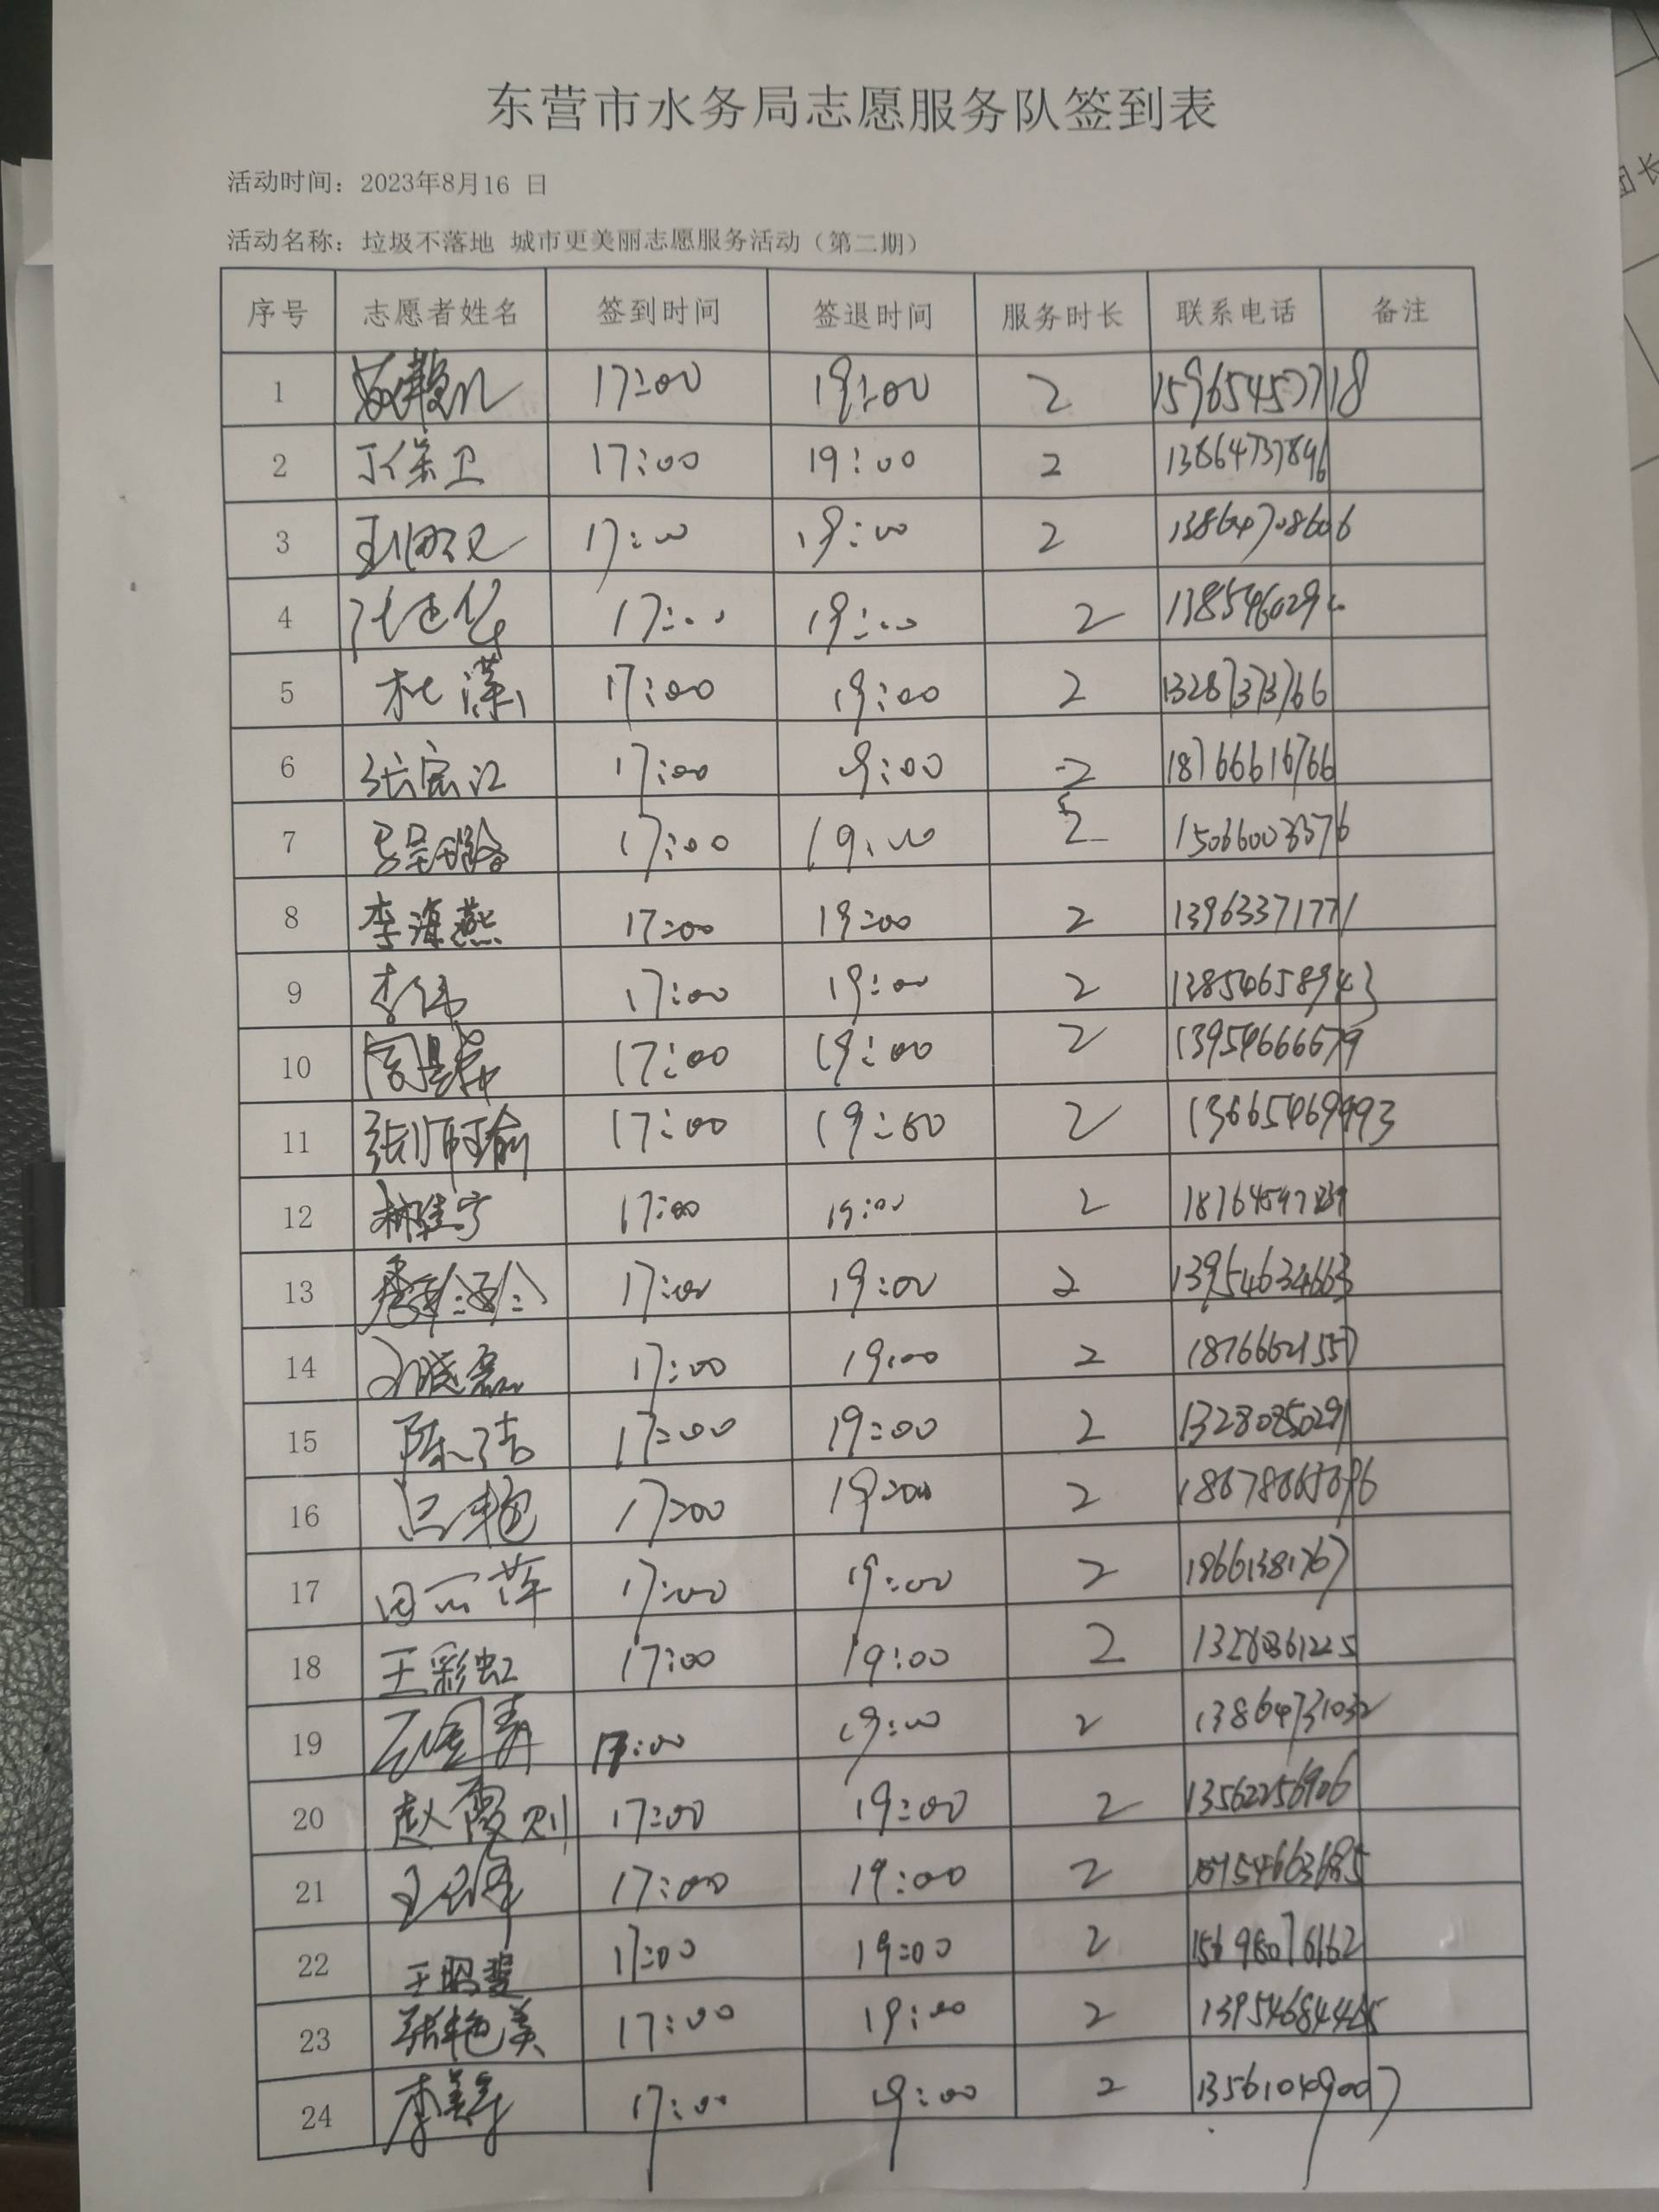 东营市水务局志愿服务队签到表
活动时间：2023年8月16 日
活动名称：垃圾不落地 城市更美丽志愿服务活动（第二期）
序号 志愿者姓名 签到时间 签退时间 服务时长 联系电话 备注
1 17:00 19:00 2 15965457718
2 丁保卫 17:00 19:00 2 13864737896
3 17:00 19:00 2 13864708606
4 17:00 19:00 2
5 杜潇 17:00 19:00 2 13287373766
6 张宏江 17:00 19:00 2 18766616766
7 17:00 19:00 2 15066003376
8 李海燕 17:00 19:00 2 13963371771
9 李伟 17:00 19:00 2 13854658943
10 17:00 19:00 2 13954666679
11 17:00 19:00 2 13665469993
12 林佳宁 17:00 19:00 2
13 17:00 19:00 2 13954634663
14 17:00 19:00 2
15 陈洁 17:00 19:00 2 13280850291
16 吕艳 17:00 19:00 2
17 田丽萍 17:00 19:00 2 18661381767
18 王彩虹 17:00 19:00 2 13280361225
19 17:00 19:00 2 13864731032
20 赵霞 17:00 19:00 2 13562256906
21 17:00 19:00 2
22 17:00 19:00 2 15698076162
23 张艳美 17:00 19:00 2
24 17:00 19:00 2 13561049007